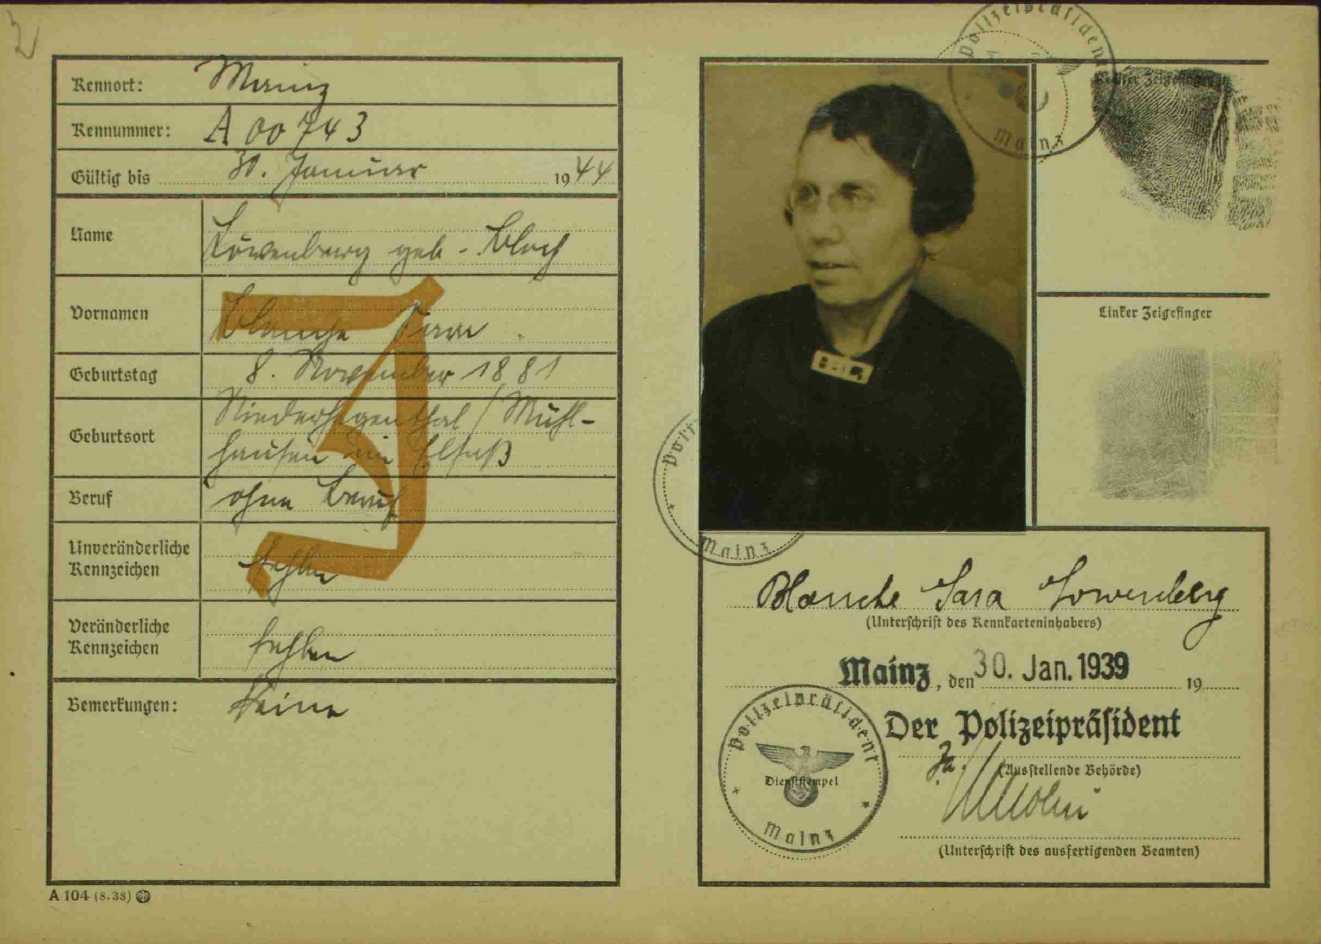 Kennort: Mainz
Kennummer: A 00743
Gültig bis 30. Januar 1944
Name Löwenberg geb. Bloch
Vornamen Blanche Sara
Geburtstag 8. November 1881
Geburtsort Niederhagenthal / Mühl-
hausen im Elsaß
Beruf ohne Beruf
Unveränderliche
Kennzeichen fehlen
Veränderliche
Kennzeichen fehlen
Bemerkungen: Keine
A 104 (8.38)
J
Polizeipräsident
Mainz
Rechter Zeigefinger
Linker Zeigefinger
Mainz
Blanche Sara Löwenberg
(Unterschrift des Kennkarteninhabers)
Mainz, den 30. Jan. 1939 19
Der Polizeipräsident
(Ausstellende Behörde)
(Unterschrift des ausfertigenden Beamten)
Polizeipräsident
Dienststempel
Mainz